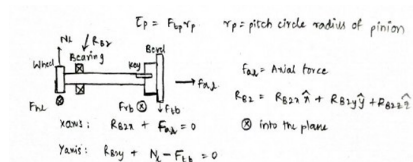 τp = Fbp rp
rp = pitch circle radius of pinion
N2
RB2
Bevel
Bearing
Wheel
key
Fa2
Fa2 = Axial force
Frb
Ftb
RB2 = RB2x x̂ + RB2y ŷ + RB2z ẑ
⊗ into the plane
xaxis: RB2x + Fa2 = 0
Yaxis: RB2y + N2 - Ftb = 0